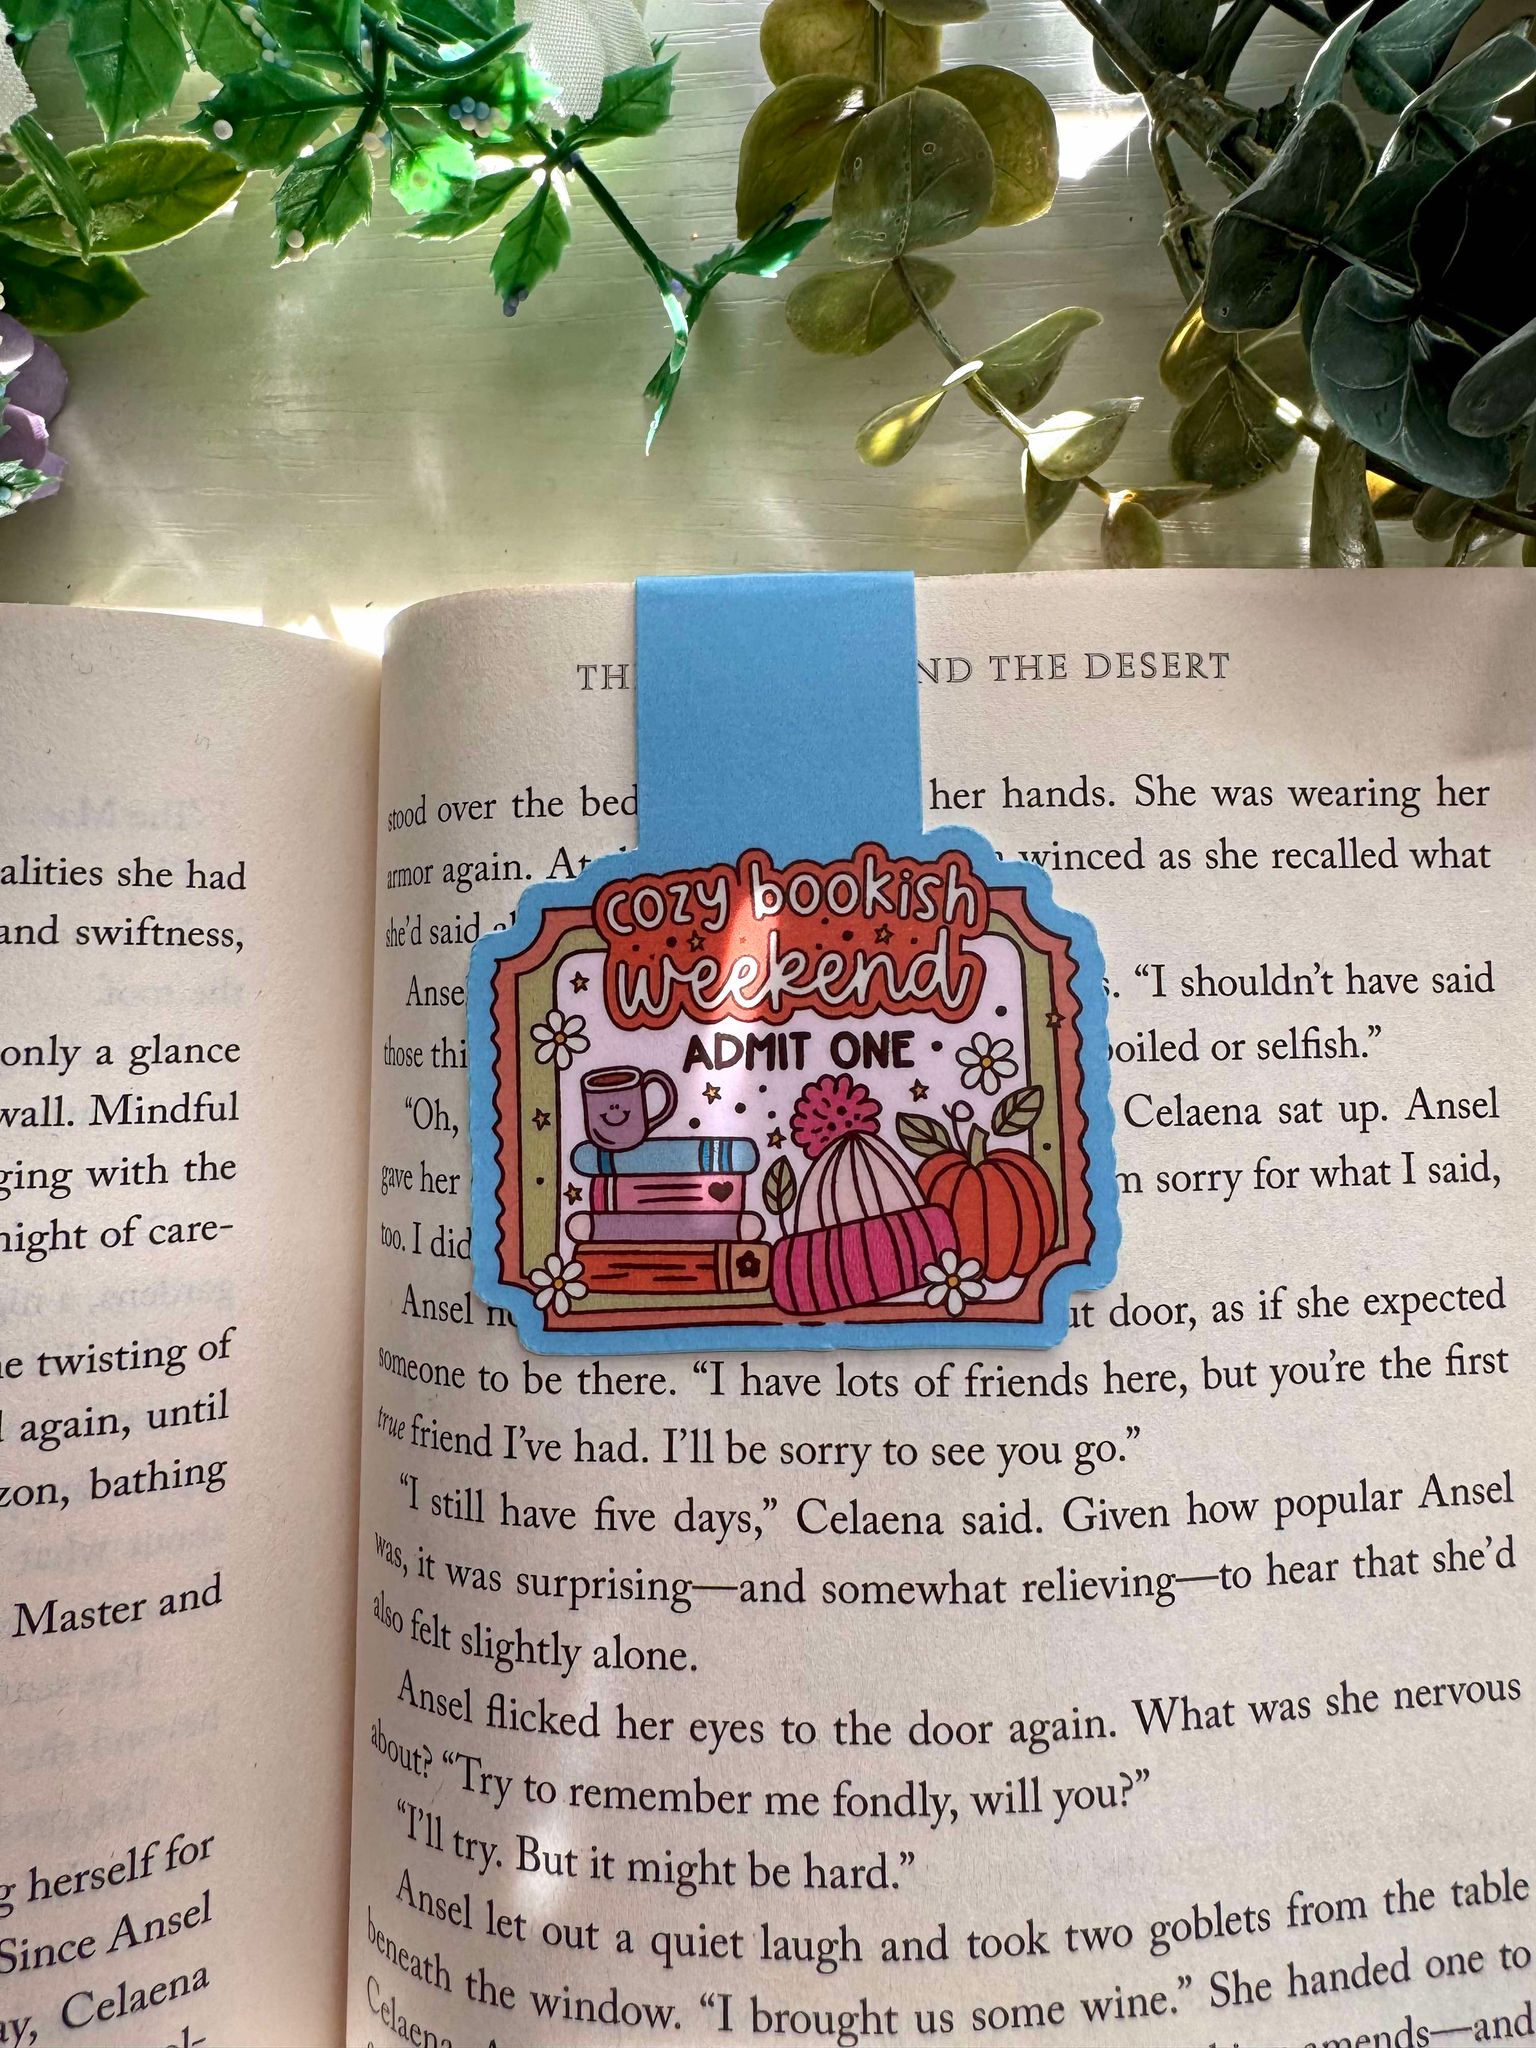 alities she had
and swiftness,
only a glance
wall. Mindful
ging with the
night of care-
e twisting of
again, until
zon, bathing
Master and
g herself for
Since Ansel
ay, Celaena
TH ND THE DESERT
stood over the bed her hands. She was wearing her
armor again. At winced as she recalled what
she'd said al
cozy bookish
weekend
ADMIT ONE
Anse s. “I shouldn’t have said
those thi poiled or selfish.”
“Oh, Celaena sat up. Ansel
gave her m sorry for what I said,
too. I did
Ansel ut door, as if she expected
someone to be there. “I have lots of friends here, but you’re the first
true friend I’ve had. I’ll be sorry to see you go.”
“I still have five days,” Celaena said. Given how popular Ansel
was, it was surprising—and somewhat relieving—to hear that she’d
also felt slightly alone.
Ansel flicked her eyes to the door again. What was she nervous
about? “Try to remember me fondly, will you?”
“I’ll try. But it might be hard.”
Ansel let out a quiet laugh and took two goblets from the table
beneath the window. “I brought us some wine.” She handed one to
Celaena. amends—and